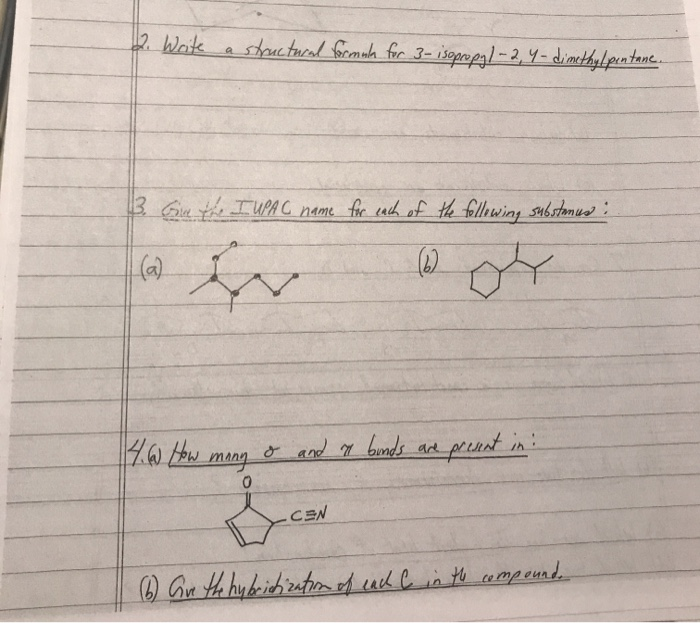 2. Write a structural formula for 3-isopropyl-2,4-dimethylpentane.
3. Give the IUPAC name for each of the following substances:
(a) (b)
4.(a) How many σ and π bonds are present in:
O
C≡N
(b) Give the hybridization of each C in the compound.